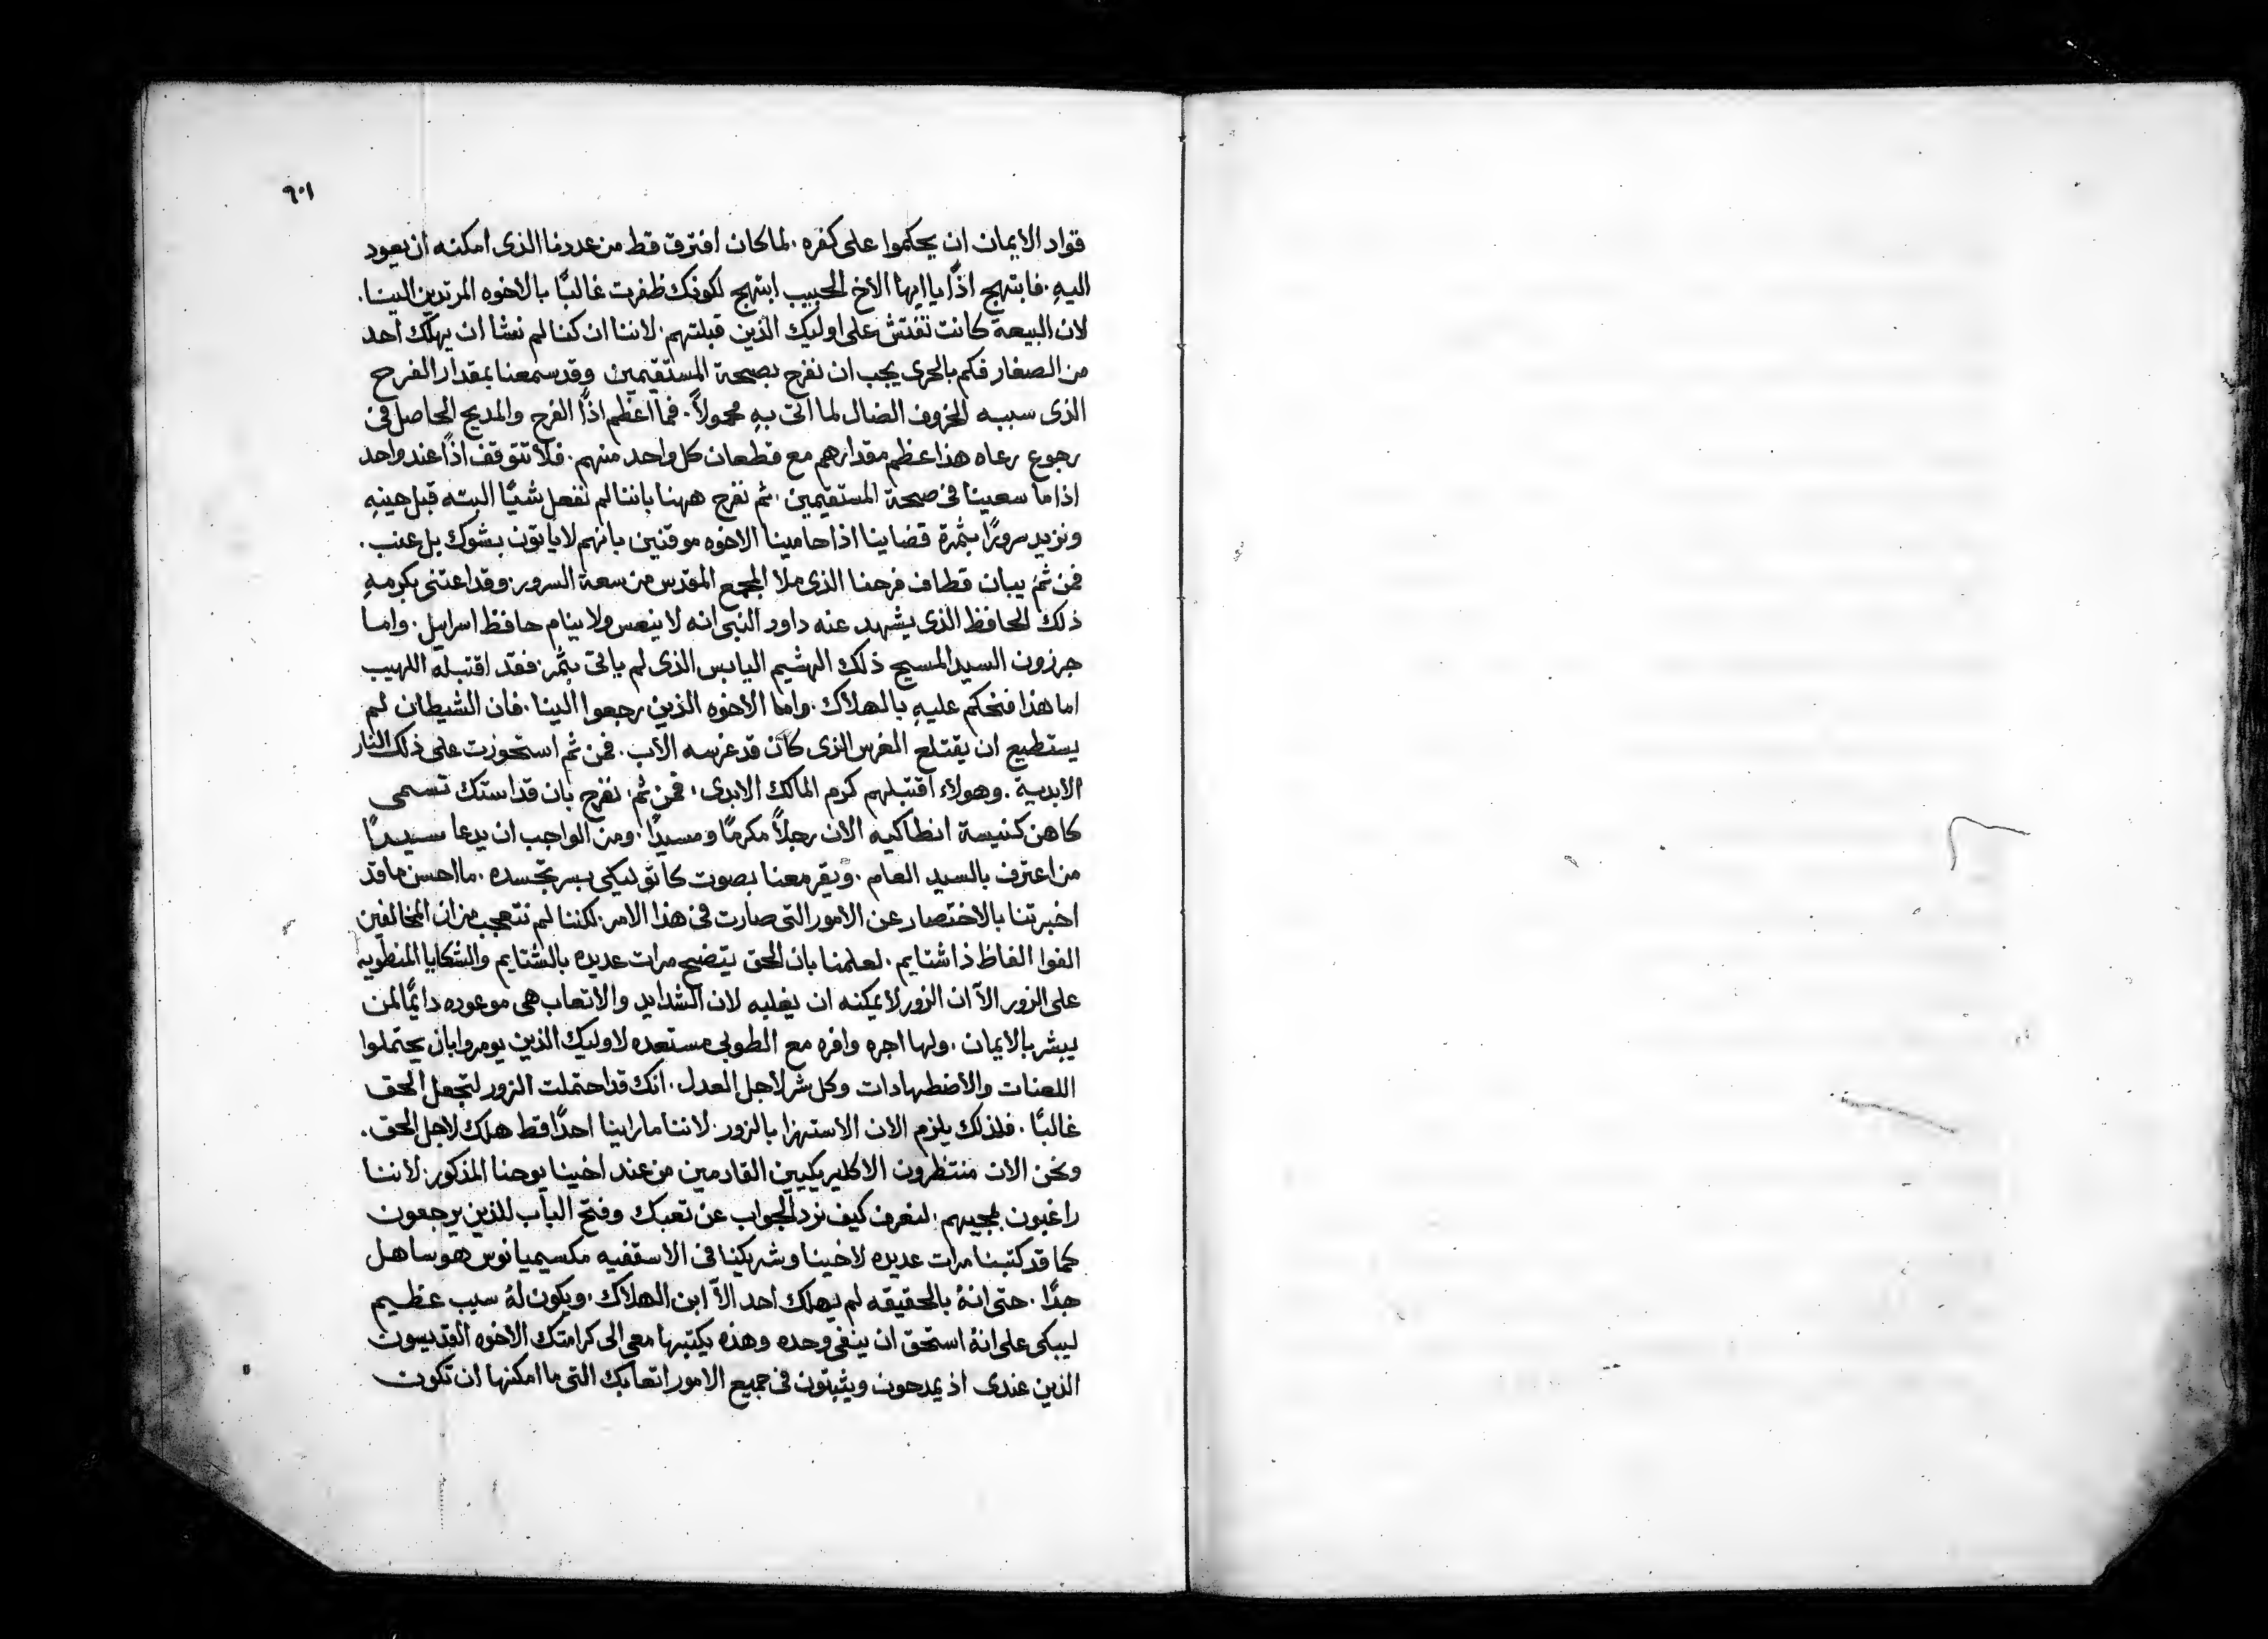 ٩٠١
قواد الايمان ان يحكموا على كفره. لما كان افترق قط من عددنا الذى امكنه ان يعود
اليهِ. فابتهج اذًا ياايها الاخ الحبيب ابتهج لكونك ظفرت غالبًا بالاخوه المرتدين الينا.
لان البيعة كانت تفتش على اوليك الذين قبلتهم. لاننا ان كنا لم نشا ان يهلك احد
من الصغار فكم بالحرى يجب ان نفرح بصحة المستقيمين وقد سمعنا بمقدار الفرح
الذى سببه الخروف الضال لما اتى بهِ محمولاً. فما اعظم اذًا الفرح والمديح الحاصل فى
رجوع رعاه هذا عظم مقدارهم مع قطعان كل واحد منهم. فلا تتوقف اذًا عند واحد
اذا ما سعينا فى صحة المستقيمين. ثم نفرح ههنا باننا لم نفعل شيًا البته قبل حينهِ
ونزيد سرورًا بثمرة قضاينا اذا حامينا الاخوه موقنين بانهم لا ياتون بشوك بل عنب.
فمن ثم يبان قطاف فرحنا الذى ملا المجمع المقدس من سعة السرور. وقد اعتنى بكرمهِ
ذلك الحافظ الذى يشهد عنه داود النبى انه لا ينعس ولا ينام حافظ اسراييل. واما
جرزون السيد المسيح ذلك الهشيم اليابس الذى لم ياتى بثمر. فقد اقتبله اللهيب
اما هذا فنحكم عليهِ بالهلاك. واما الاخوه الذين رجعوا الينا. فان الشيطان لم
يستطيع ان يقتلع الغرس الذى كان قد غرسه الأب. فمن ثم استحوزت على ذلك النار
الأبدية. وهولاء اقتبلهم كرم المالك الابدى. فمن ثم نفرح بان قداستك تسمى
كاهن كنيسة انطاكيه الان رجلاً مكرمًا ومسيدًا. ومن الواجب ان يدعا سيدًا
من اعترف بالسيد العام. ويقر معنا بصوت كاتوليكى بسر تجسده. ما احسن ما قد
اخبرتنا بالاختصار عن الامور التى صارت فى هذا الامر. لكننا لم نتعجب من ان المخالفين
الفوا الفاظ ذا شتايم. لعلمنا بان الحق يتضح مرات عديده بالشتايم والشكايا المنطويه
على الزور الاّ ان الزور لا يمكنه ان يغلبه لان الشدايد والأتعاب هى موعوده دايمًا لمن
يبشر بالايمان. ولها اجره وافره مع الطوبى مستعده لاوليك الذين يومروا بان يحتملوا
اللعنات والأضطهادات وكل شر لأجل العدل. انك قد احتملت الزور لتجعل الحق
غالبًا. فلذلك يلزم الان الاستهزا بالزور. لاننا ما راينا احدًا قط هلك لاجل الحق.
ونحن الان منتظرون الاكليريكيين القادمين من عند اخينا يوحنا المذكور. لاننا
راغبون بمجيهم. لنعرف كيف نرد الجواب عن تعبك وفتح الباب للذين يرجعون
كما قد كتبنا مرات عديده لاخينا وشريكنا فى الاسقفيه مكسيميانوس هو ساهل
جدًا. حتى انهُ بالحقيقه لم يهلك احد الاّ ابن الهلاك. ويكون لهُ سبب عظيم
ليبكى على انهُ استحق ان ينفى وحده وهذه يكتبها معى الى كرامتك الاخوه القديسون
الذين عندى اذ يمدحون ويثبتون فى جميع الامور اتعابك التى ما امكنها ان تكون